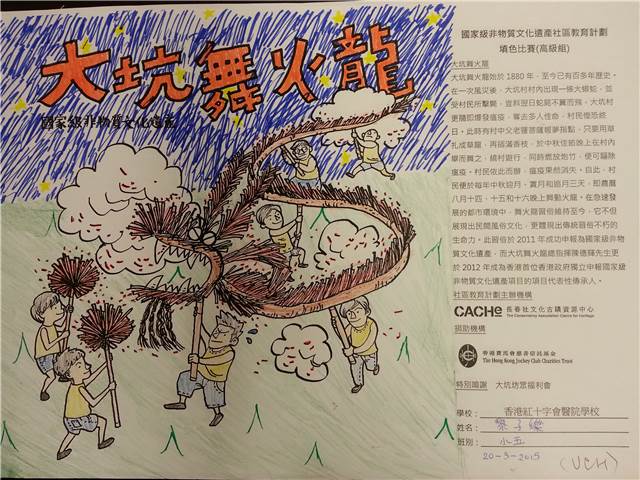 大坑舞火龍
國家級非物質文化遺產
國家級非物質文化遺產社區教育計劃
填色比賽(高級組)
大坑舞火龍
大坑舞火龍始於 1880 年，至今已有百多年歷史。
在一次風災後，大坑村村內出現一條大蟒蛇，並
受村民所擊斃，豈料翌日蛇屍不翼而飛，大坑村
更隨即爆發瘟疫，奪去多人性命，村民惶恐終
日。此時有村中父老獲菩薩報夢指點，只要用草
扎成草龍，再插滿香枝，於中秋佳節晚上在村內
舞而舞之，繞村遊行，同時燃放炮竹，便可驅除
瘟疫。村民依此而辦，瘟疫果然消失。自此，村
民便於每年中秋迎月、賞月和追月三天，即農曆
八月十四、十五和十六晚上舞動火龍。在急速發
展的都市環境中，舞火龍習俗維持至今，它不但
展現出民間風俗文化，更體現出傳統習俗不朽的
生命力。此習俗於 2011 年成功申報為國家級非物
質文化遺產，而大坑舞火龍總指揮陳德輝先生更
於 2012 年成為香港首位香港政府獨立申報國家級
非物質文化遺產項目的項目代表性傳承人。
社區教育計劃主辦機構
CACHe 長春社文化古蹟資源中心
The Conservancy Association Centre for Heritage
捐助機構
香港賽馬會慈善信託基金
The Hong Kong Jockey Club Charities Trust
特別鳴謝 大坑坊眾福利會
學校： 香港紅十字會醫院學校
姓名： 黎子
班別： 小五
20-3-2015 (UCH)